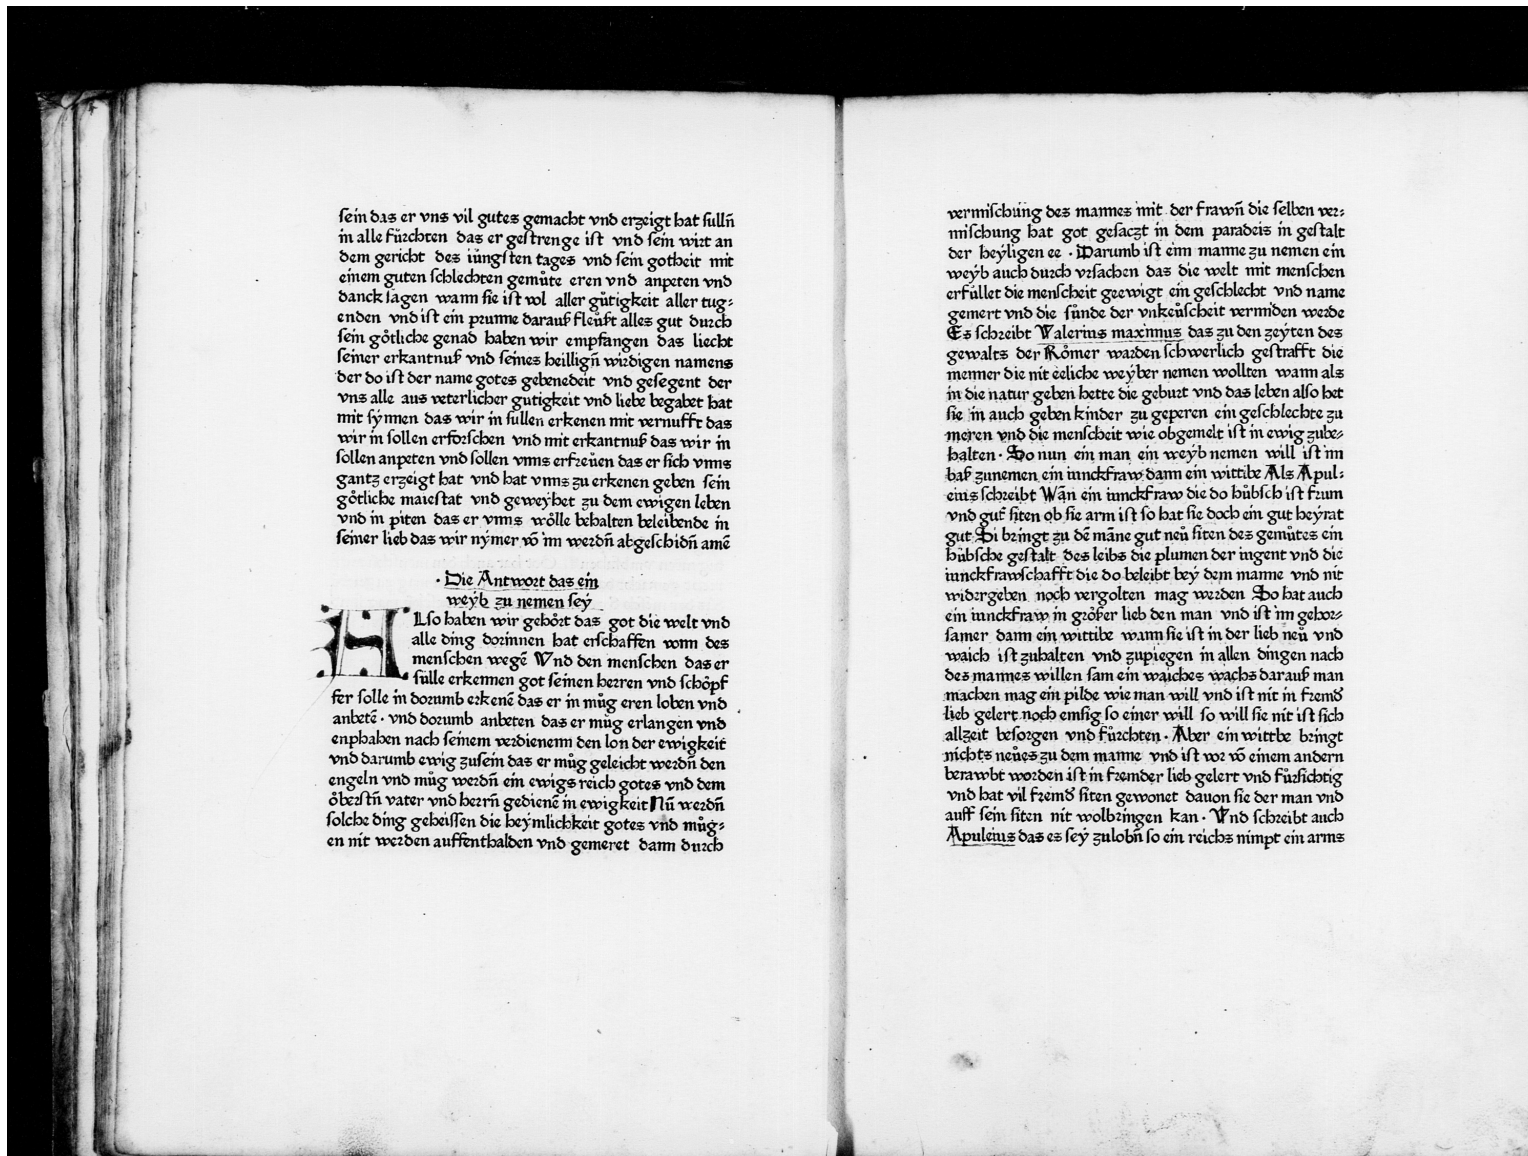 sein das er vns vil gutes gemacht vnd erzeigt hat sulln̄
in alle fürchten das er gestrenge ist vnd sein wirt an
dem gericht des iüngsten tages vnd sein gotheit mit
einem guten schlechten gemůte eren vnd anpeten vnd
danck sagen wann sie ist vol aller gůtigkeit aller tug⸗
enden vnd ist ein prunne darauß fleůßt alles gut durch
sein gőtliche genad haben wir empfangen das liecht
seiner erkantnuß vnd seines heillign̄ wirdigen namens
der do ist der name gotes gebenedeit vnd gesegent der
vns alle aus veterlicher gutigkeit vnd liebe begabet hat
mit synnen das wir in sullen erkenen mit vernufft das
wir in sollen erforschen vnd mit erkantnuß das wir in
sollen anpeten vnd sollen vnns erfreüen das er sich vnns
gantz erzeigt hat vnd hat vnns zu erkenen geben sein
gőtliche maiestat vnd geweyhet zu dem ewigen leben
vnd in piten das er vnns wőlle behalten beleibende in
seiner lieb das wir nymer vō im werdn̄ abgeschidn̄ amē
· Die Antwort das ein
weyb zu nemen sey
ALso haben wir gehőrt das got die welt vnd
alle ding dorinnen hat erschaffen vonn des
menschen wegē Vnd den menschen das er
sülle erkennen got seinen herren vnd schőpf
fer solle in dorumb erkenē das er in můg eren loben vnd
anbetē · vnd dorumb anbeten das er můg erlangen vnd
enphahen nach seinem verdienenn den lon der ewigkeit
vnd darumb ewig zusein das er můg geleicht werdn̄ den
engeln vnd můg werdn̄ ein ewigs reich gotes vnd dem
őberstn̄ vater vnd herrn̄ gedienē in ewigkeit Nū werdn̄
solche ding geheissen die heymlichkeit gotes vnd můg⸗
en nit werden auffenthalden vnd gemeret dann durch
vermischung des mannes mit der frawn̄ die selben ver⸗
mischung hat got gesaczt in dem paradeis in gestalt
der heyligen ee · Darumb ist einn manne zu nemen ein
weyb auch durch vrsachen das die welt mit menschen
erfüllet die menscheit geewigt ein geschlecht vnd name
gemert vnd die sünde der vnkeůscheit vermiden werde
Es schreibt Valerius maximus das zu den zeyten des
gewalts der Rőmer warden schwerlich gestrafft die
menner die nit eeliche weyber nemen wollten wann als
in die natur geben hette die geburt vnd das leben also het
sie in auch geben kinder zu geperen ein geschlechte zu
meren vnd die menscheit wie obgemelt ist in ewig zube⸗
halten · So nun ein man ein weyb nemen will ist im
baß zunemen ein iunckfraw dann ein wittibe Als Apul⸗
eius schreibt Wān ein iunckfraw die do hůbsch ist frum
vnd gut̄ siten ob sie arm ist so hat sie doch ein gut heyrat
gut Si bringt zu dē māne gut neů siten des gemůtes ein
hůbsche gestalt des leibs die plumen der iugent vnd die
iunckfrawschafft die do beleibt bey dem manne vnd nit
widergeben noch vergolten mag werden So hat auch
ein iunckfraw in grőßer lieb den man vnd ist im gehor⸗
samer dann ein wittibe wann sie ist in der lieb neů vnd
waich ist zuhalten vnd zupiegen in allen dingen nach
des mannes willen sam ein waiches wachs darauß man
machen mag ein pilde wie man will vnd ist nit in fremd̄
lieb gelert noch emsig so einer will so will sie nit ist sich
allzeit besorgen vnd fůrchten · Aber ein wittbe bringt
nichts neůes zu dem manne vnd ist vor vō einem andern
berawbt worden ist in fremder lieb gelert vnd fůrsichtig
vnd hat vil fremd̄ siten gewonet dauon sie der man vnd
auff sein siten nit wolbringen kan · Vnd schreibt auch
Apuleius das es sey zulobn̄ so ein reichs nimpt ein arms